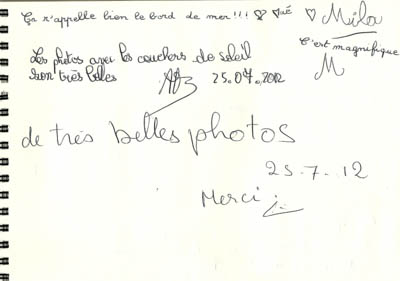 Ça s'appelle bien le bord de mer!!! ♡ ♡ ♡ Mila
C'est magnifique
M
Les photos avec les couchers de soleil
son très belles
25.07.2012
de très belles photos
25.7.12
Merci